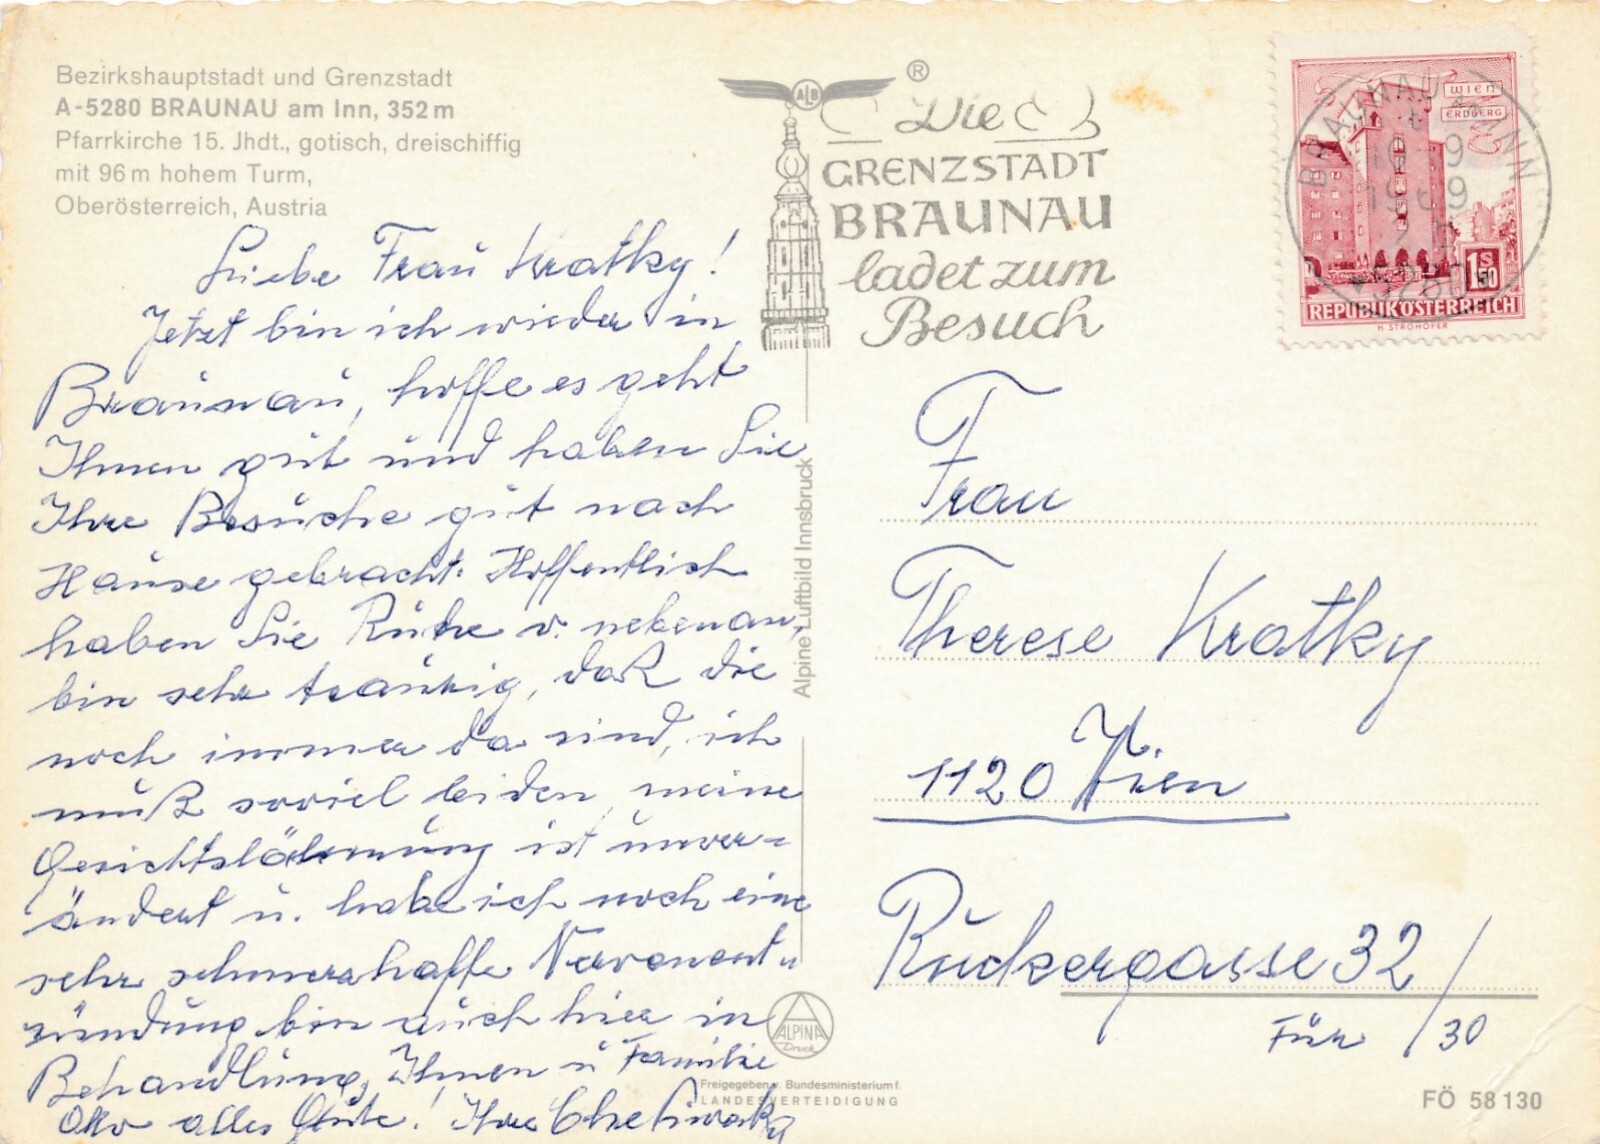 Bezirkshauptstadt und Grenzstadt
A-5280 BRAUNAU am Inn, 352 m
Pfarrkirche 15. Jhdt., gotisch, dreischiffig
mit 96 m hohem Turm,
Oberösterreich, Austria
ALB
®
Die
GRENZSTADT
BRAUNAU
ladet zum
Besuch
WIEN
ERDBERG
1S50
REPUBLIK ÖSTERREICH
H. STROHOFER
BRAUNAU AM INN
1969
5280
Liebe Frau Kratky!
Jetzt bin ich wieder in
Braunau, hoffe es geht
Ihnen gut und haben Sie
Ihre Besuche gut nach
Hause gebracht. Hoffentlich
haben Sie Ruhe v. nebenan,
bin sehr traurig, daß die
noch immer da sind, ich
muß soviel leiden, meine
Gesichtslähmung ist unver-
ändert u. habe ich noch eine
sehr schmerzhafte Nervenent-
zündung bin auch hier in
Behandlung, Ihnen u Familie
Otto alles Gute! Ihre
Alpine Luftbild Innsbruck
ALPINA
Druck
Freigegeben v. Bundesministerium f.
LANDESVERTEIDIGUNG
Frau
Therese Kratky
1120 Wien
Ruckergasse 32/
Tür 30
FÖ 58 130